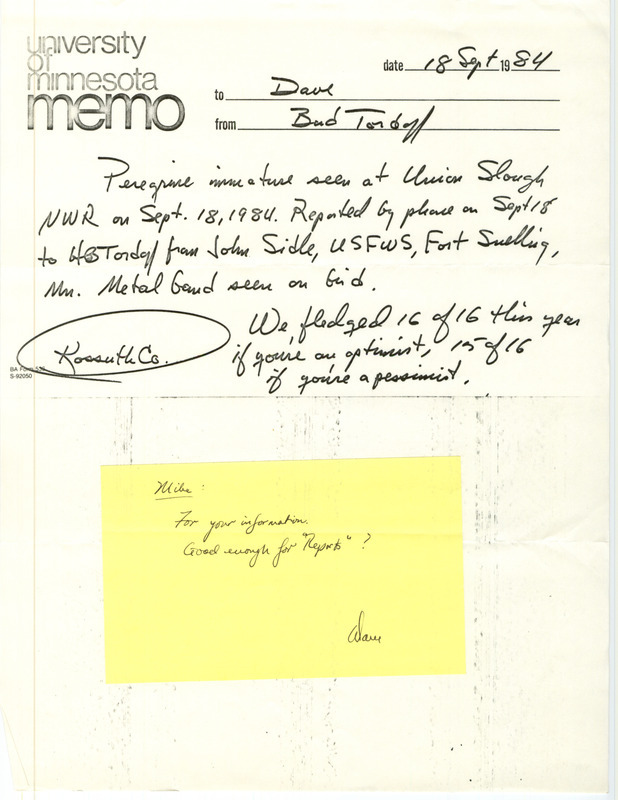 university
of
minnesota
memo
date 18 Sept 1984
to Dave
from Bud Tordoff
Peregrine immature seen at Union Slough
NWR on Sept. 18, 1984. Reported by phone on Sept 18
to HBTordoff from John Sidle, USFWS, Fort Snelling,
Mn. Metal band seen on bird.
We fledged 16 of 16 this year
if you're an optimist, 15 of 16
if you're a pessimist.
Kossuth Co.
BA Form
S-92050
Mike:
For your information.
Good enough for "Reports"?
Dave